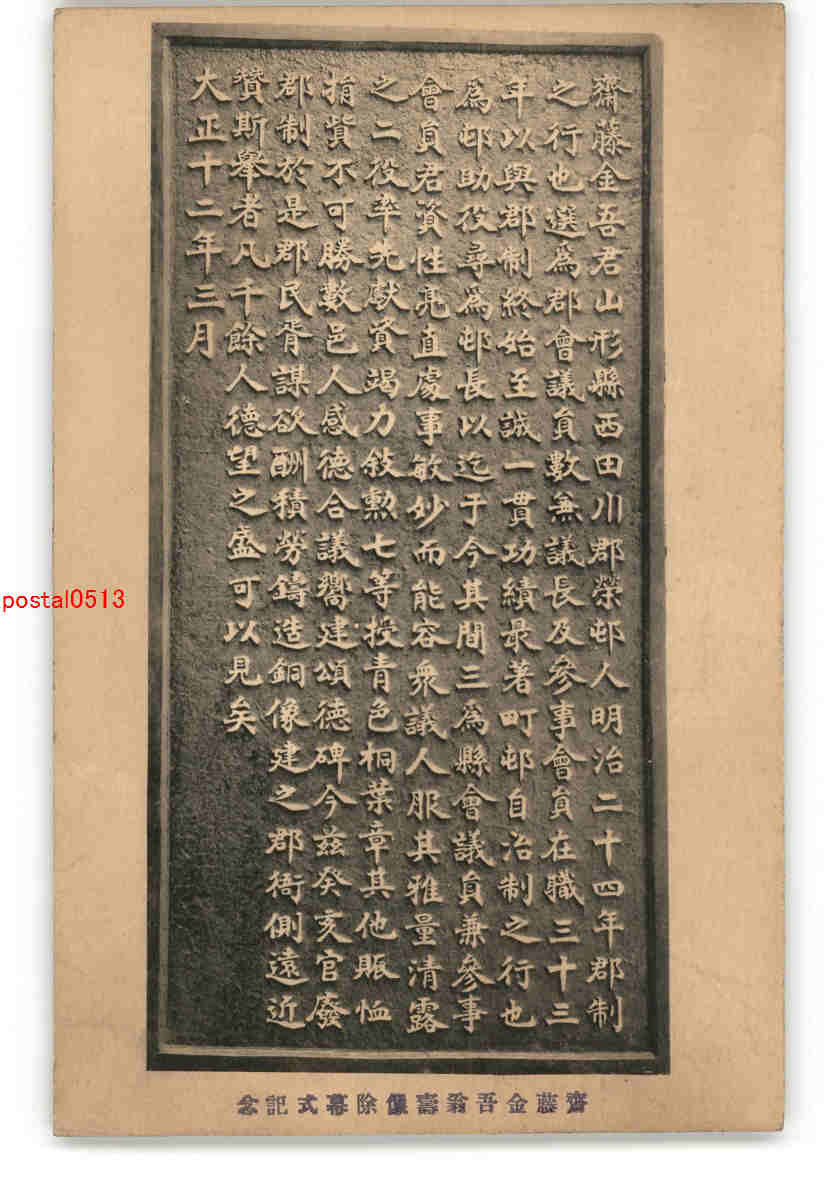 齋藤金吾君山形縣西田川郡榮邨人明治二十四年郡制
之行也選爲郡會議員數無議長及參事會員在職三十三
年以與郡制終始至誠一貫功績最著町邨自治制之行也
爲邨助役尋爲邨長以迄于今其間三爲縣會議員兼參事
會員君資性亮直處事敏妙而能容衆議人服其雅量清露
之二役率先献資竭力敍勲七等授青色桐葉章其他賑恤
捐貲不可勝數邑人感德合議嚮建頌德碑今茲癸亥官廢
郡制於是郡民胥謀欲酬積勞鑄造銅像建之郡衙側遠近
贊斯擧者凡千餘人德望之盛可以見矣
大正十二年三月
齋藤金吾翁壽像除幕式記念
postal0513